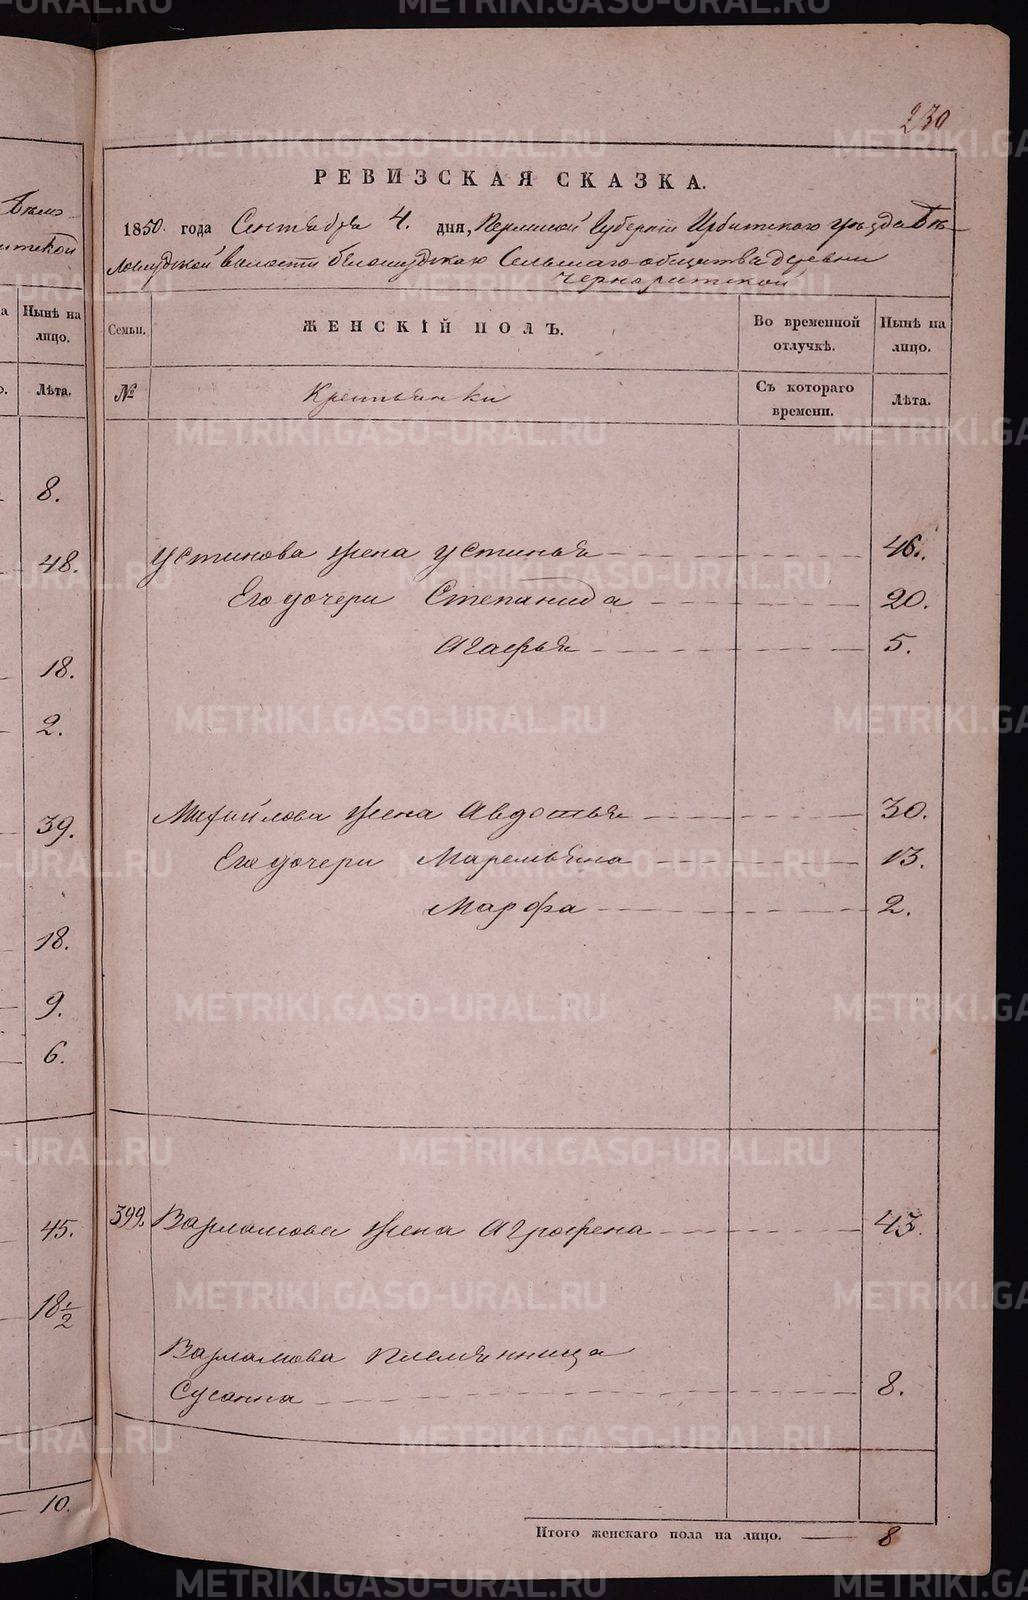 230
РЕВИЗСКАЯ СКАЗКА.
1850. года Сентября 4. дня, Пермской Губернiи Ирбитского уѣзда Бѣ-
лослудской волости Белослудскаго Сельскаго общества деревни
Чернорицкой
Нынѣ на лицо.
Лѣта.
8.
48.
18.
2.
39.
18.
9.
6.
45.
18 1/2
10.
Семьи.
ЖЕНСКIЙ ПОЛЪ.
Во временной отлучкѣ.
Нынѣ на лицо.
№
Крестьянки
Съ котораго времени.
Лѣта.
Устинова жена Устинья 46.
Его дочери Степанида 20.
Агафья 5.
Михайлова жена Авдотья 30.
Его дочери Маремьяна 13.
Марфа 2.
399. Варламова жена Агрофена 43.
Варламова племянница
Сусанна 8.
Итого женскаго пола на лицо. 8
METRIKI.GASO-URAL.RU